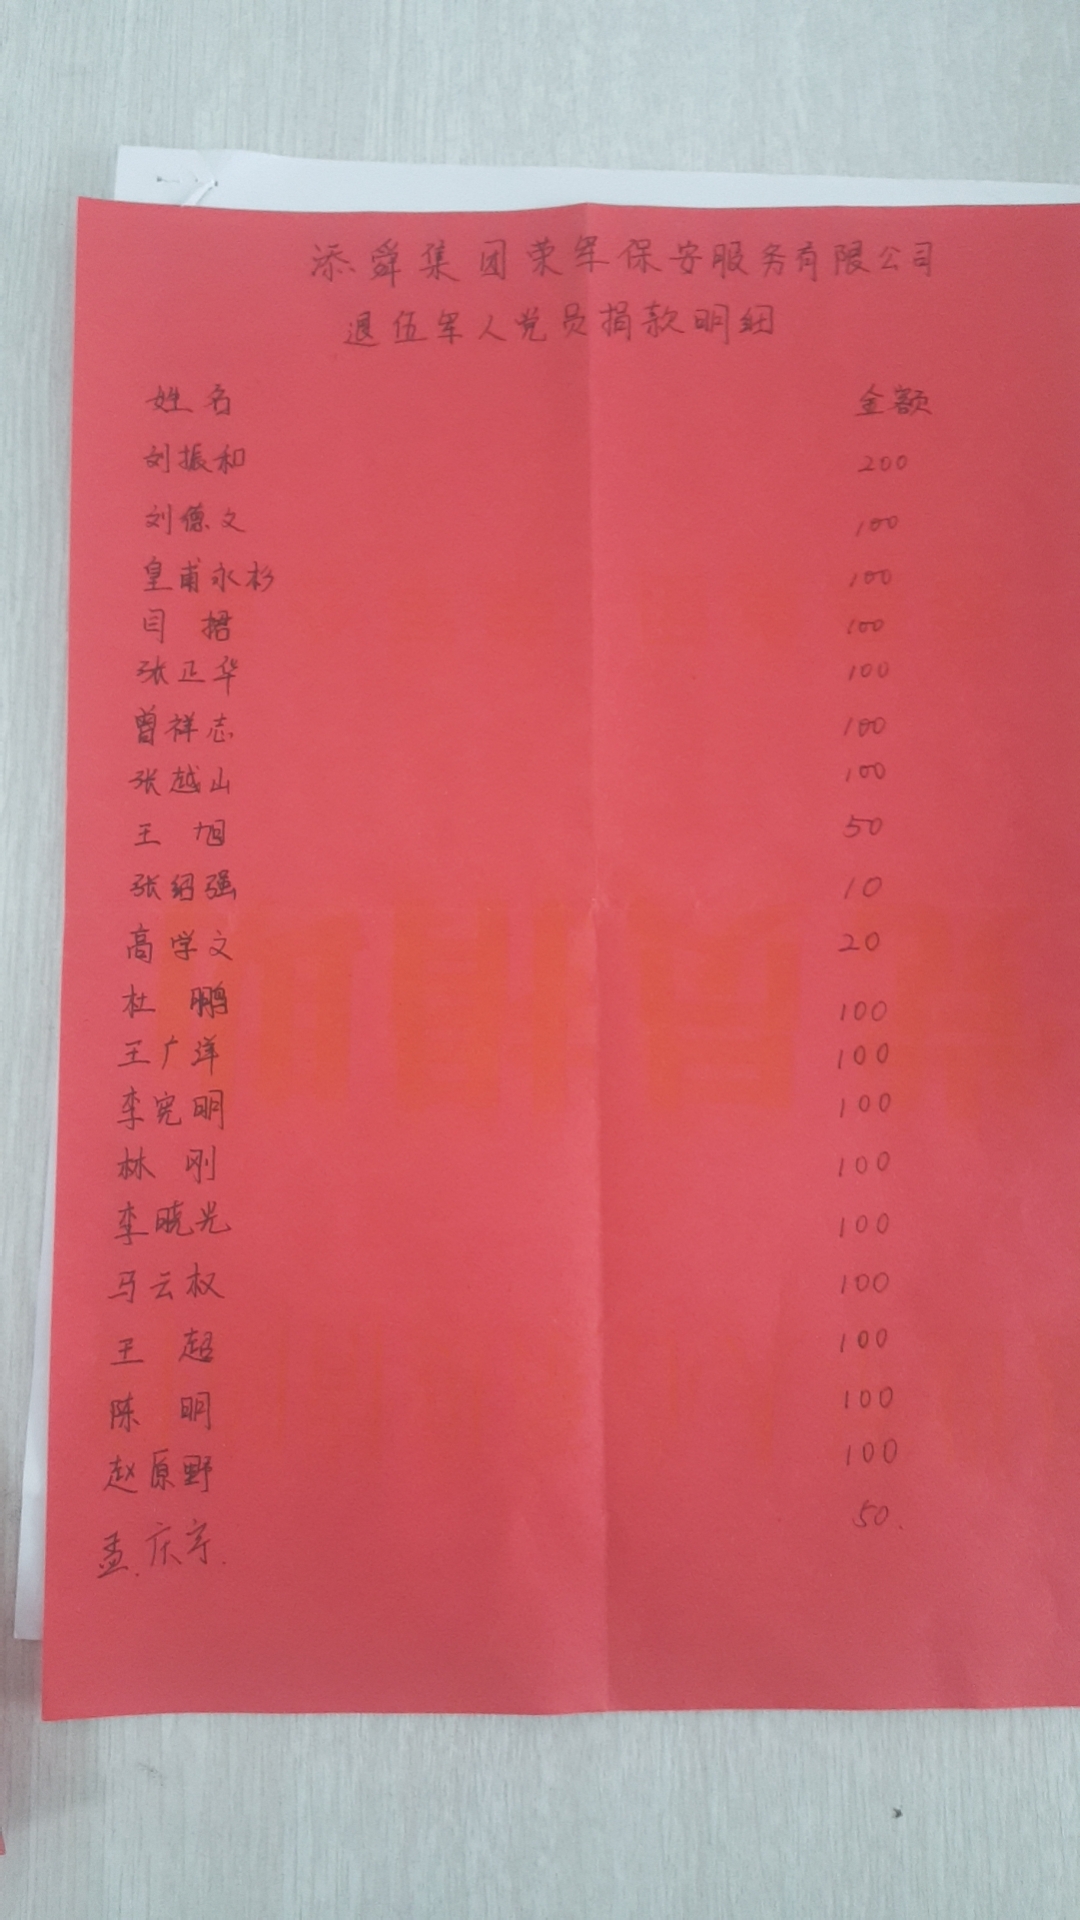 添舜集团荣军保安服务有限公司
退伍军人党员捐款明细
姓名 金额
刘振和 200
刘德文 100
皇甫永杉 100
闫捃 100
张正华 100
曾祥志 100
张越山 100
王旭 50
张绍强 10
高学文 20
杜鹏 100
王广洋 100
李宪明 100
林刚 100
李晓光 100
马云权 100
王超 100
陈明 100
赵原野 100
孟庆宇. 50.